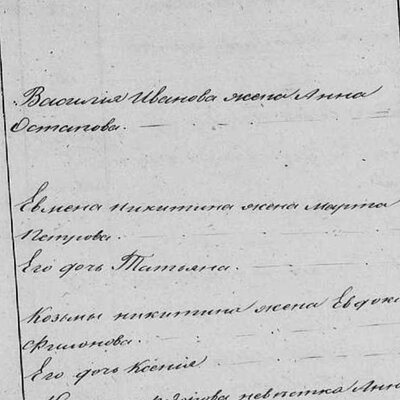 Василія Иванова жена Анна
Остапова.
Евмена никитина жена марта
Петрова.
Его дочь Татьяна.
Козьмы никитина жена Евдоки
Филонова.
Его дочь Ксенія
невѣстка Анна